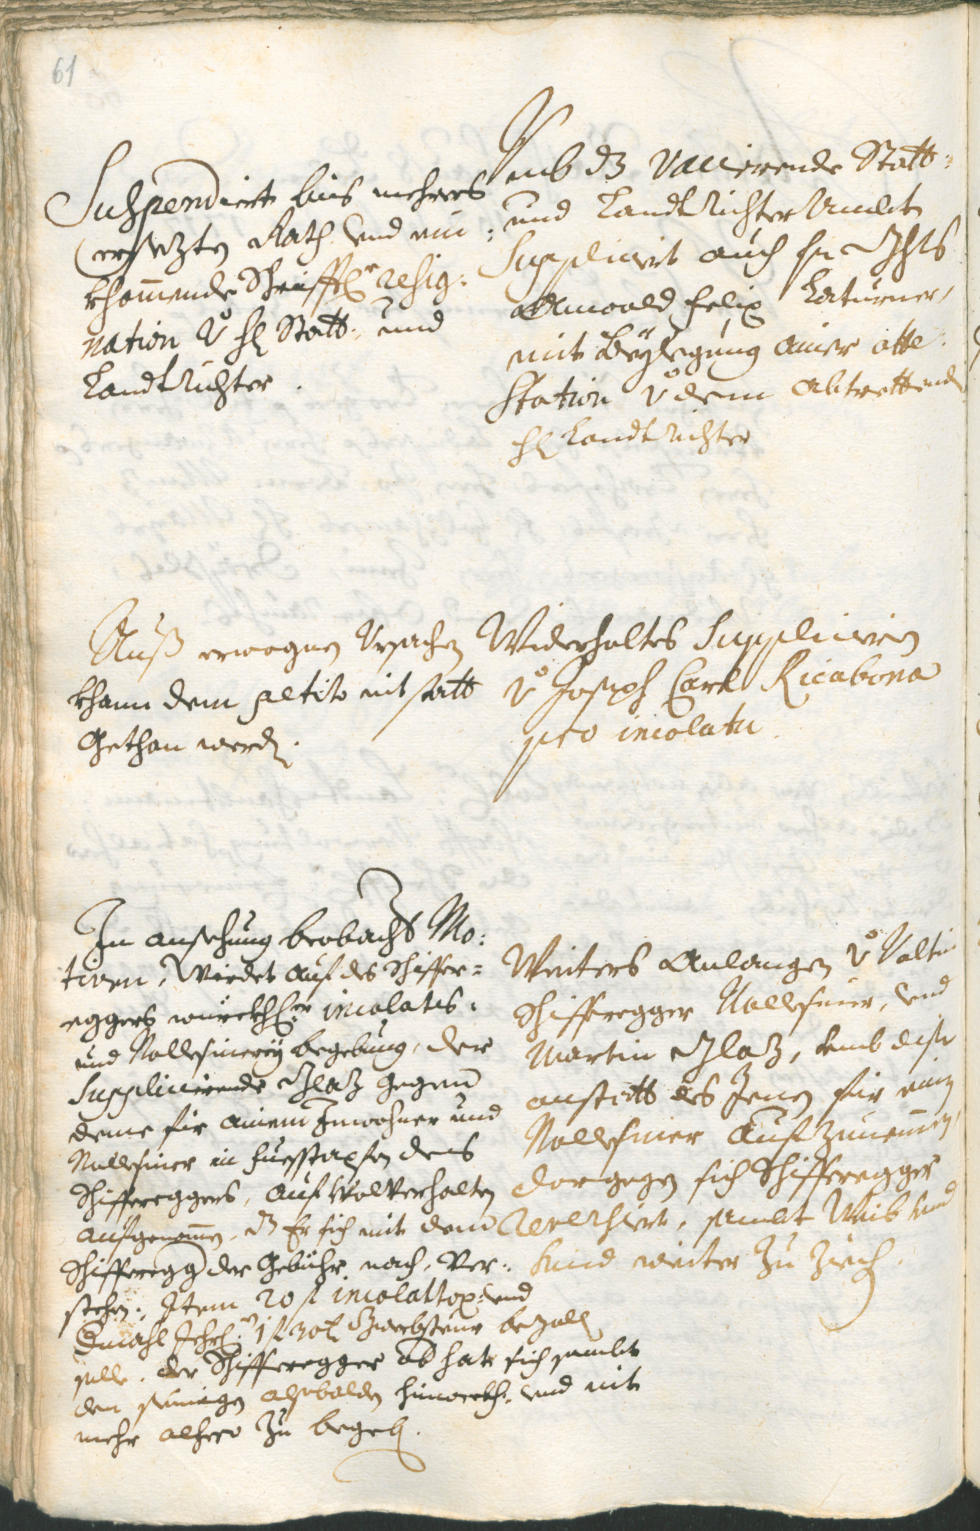 61
Suspendiert bis mehrers
ersezten Rath und ein:
khommende Schrifftl: resig:
nation v: hl Statt- und
Landtrichter.
Umb dz Vacierende Statt-
und Landtrichter Ambt
Suppliciert auch hr
Oswald Felix Laturner,
mit Beylegung ainer atte:
station v: dem abtrettenden
hl Landtrichter
Auß erwognen Ursachen
khann dem petito nit statt
Gethan werden.
Widerholtes Supplicieren
v: Joseph Carl Ricabona
pro incolatu
In ansechung beobacht Mo:
tiven, wirdet auf des Schiffer-
eggers würckhl: incolats-
und Nollesinerey begebung, der
Supplicierende Glaz gegen
deme für ainem Inwohner und
Nollesiner in fuesstapfen dess
Schiffereggers, auf Wolverhalten
aufgenommen, dz Er sich mit dem
Schifferegg der Gebühr nach Ver-
stehen, Item 20 f incolattax und
Jehrl: 1 f 30 k bezallen
solle. der Schifferegger ab hat sich sambt
den seinigen alsobalden hinweckh und nit
mehr alhero zu begeben.
Weiters Anlangen v: Valtin
Schifferegger Nollesiner, und
Martin Glaz, umb disen
anstatt des Jenen für ein
Nollesiner aufzunemmen,
dargegen sich Schifferegger
reversiert, sambt Weib und
Kind weiter zu ziechen.